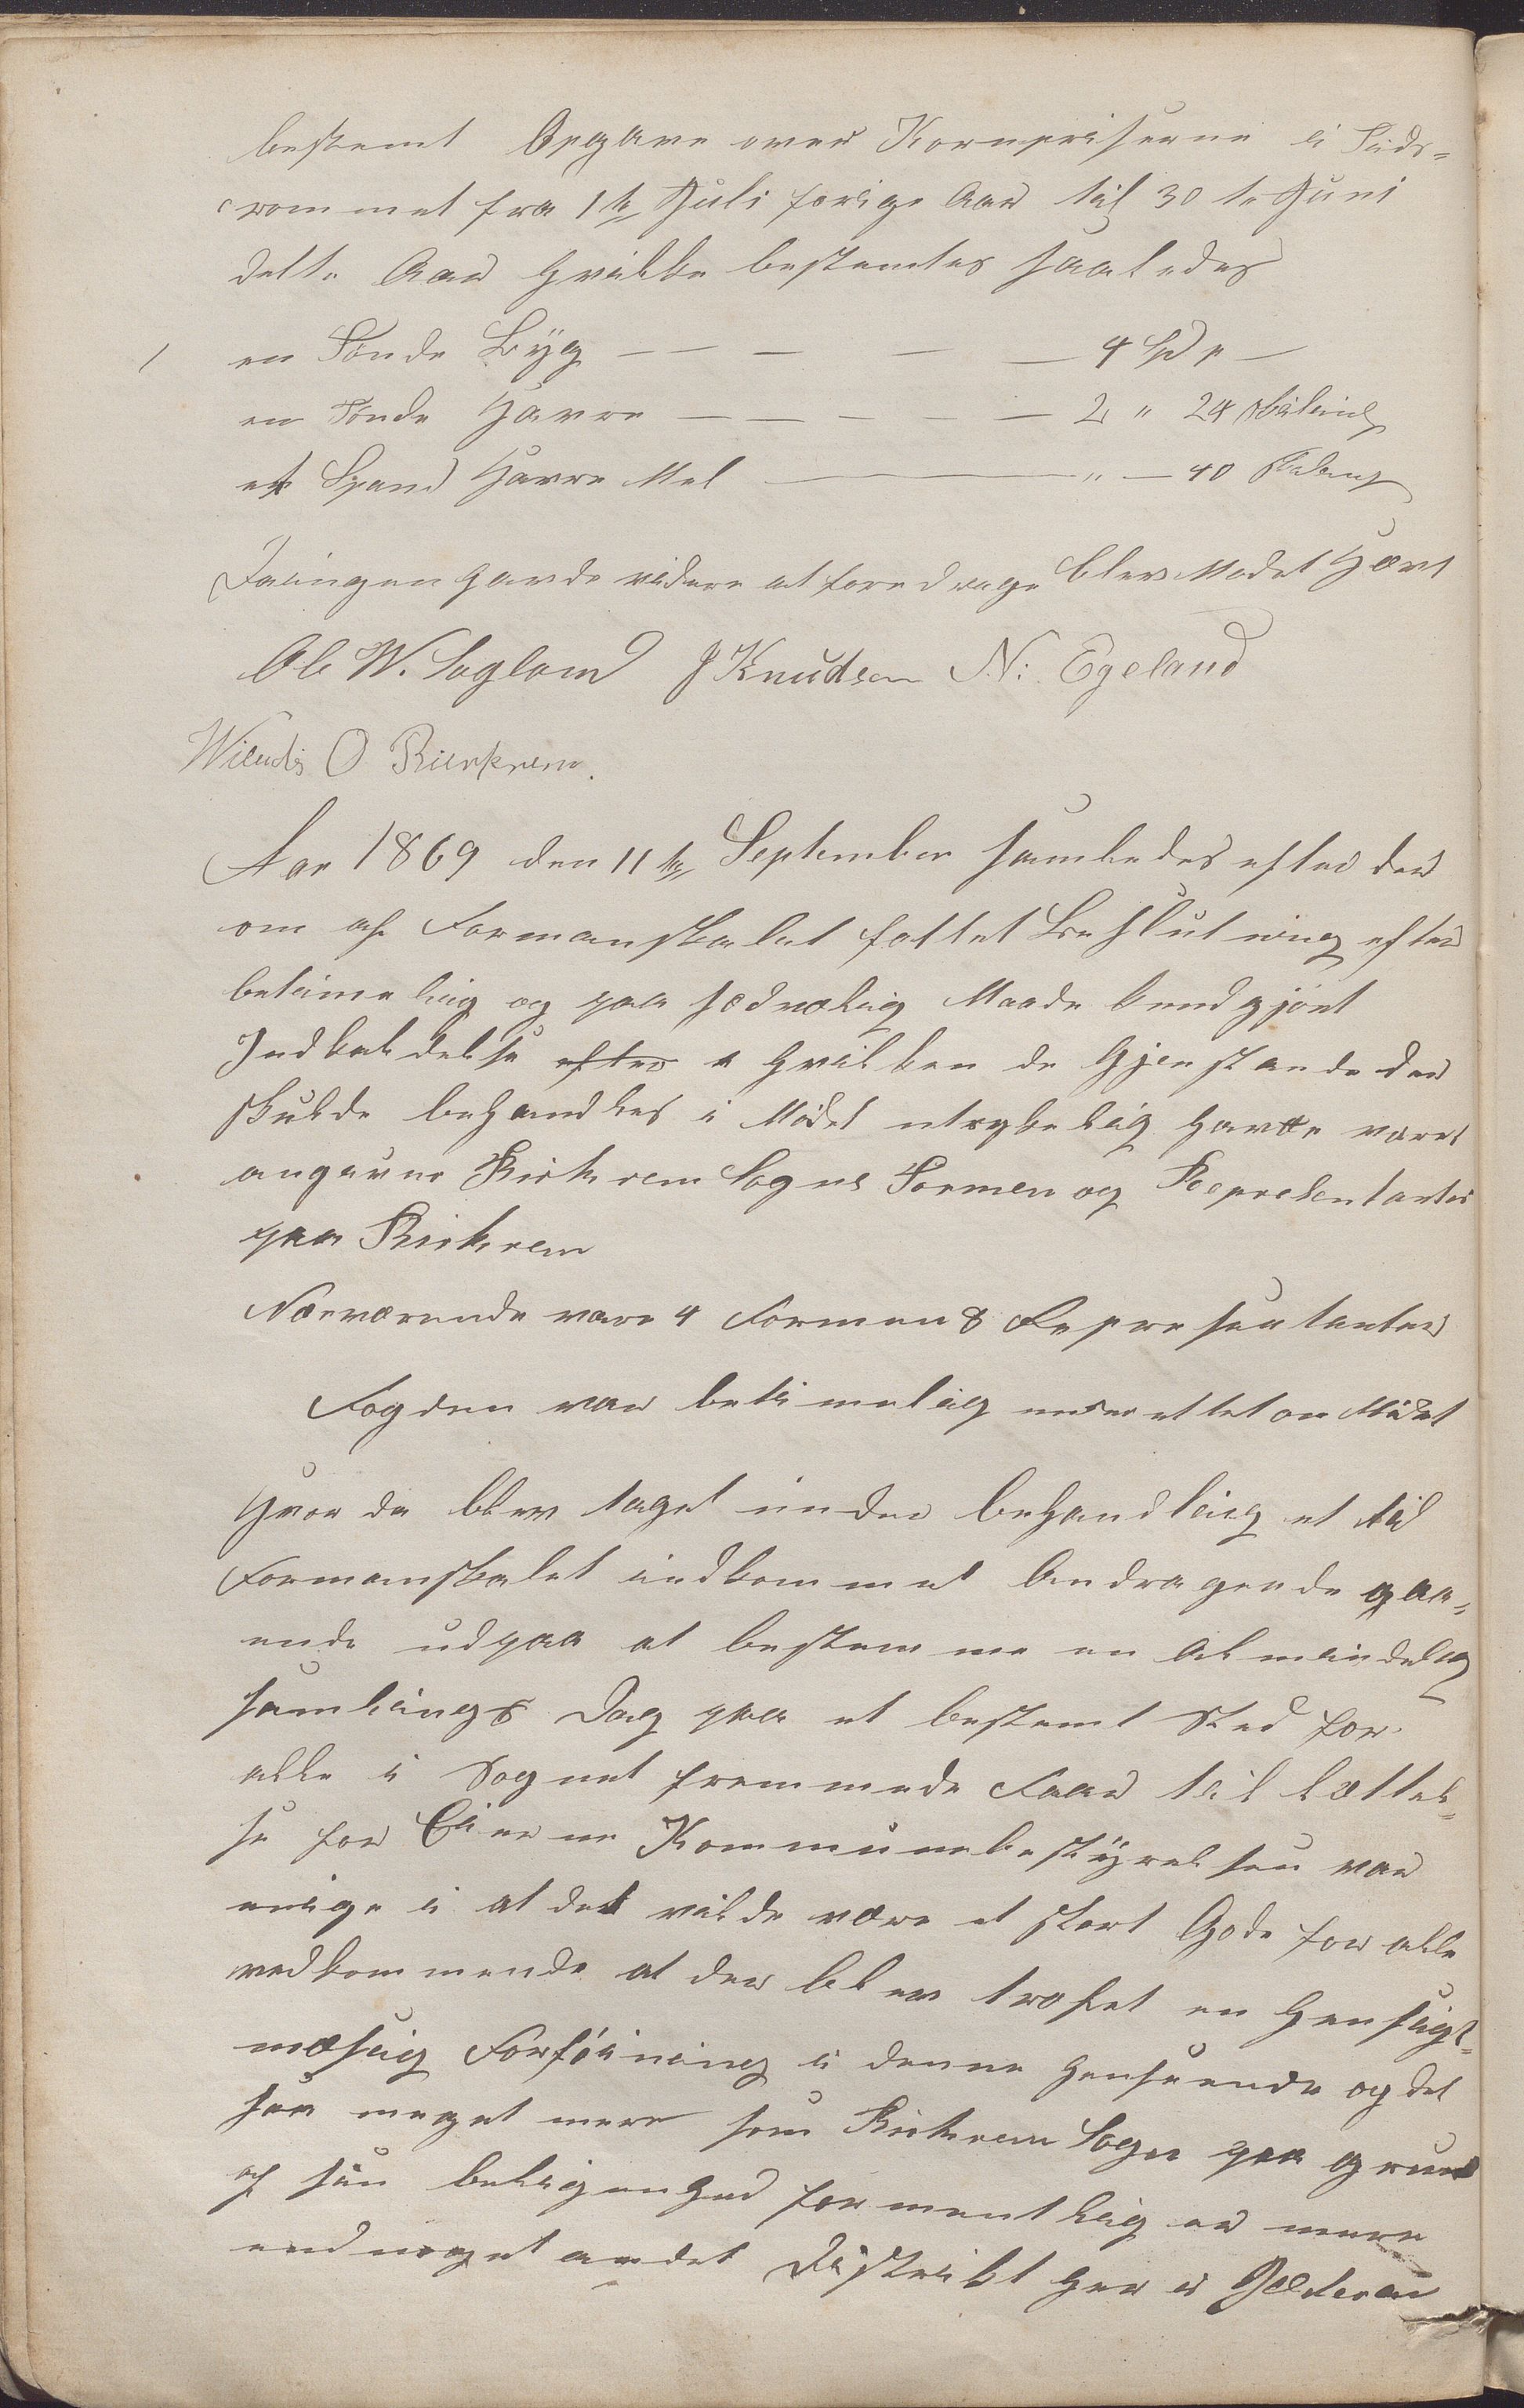 bestemt Opgave over Kornpriserne i Tids-
rommet fra 1te Juli forige Aar til 30te Juni
dette Aar hvilke bestemtes saaledes
1 en Tönde Byg — — — — — 4 Spd " —
en Tönde Havre — — — — — 2 " 24 skiling
et Spand Havre Mel — " — 40 skiling
Da ingen havde videre at foredrage blev Mødet Hævt
Ole W. Soglam J Knudsen N: Egeland
O Birkrem.
Aar 1869 den 11te September samledes efter der
om af Formanskabet fattet Beslutning efter
betimelig og paa sædvalig Maade bendgjört
Indkaldelse efter i hvilken de Gjenstande der
skulde behandles i Mödet utrykelig havde været
angivne Birkrem Sogns Formen og Representanter
paa Birkrem
Nærværende vare 4 Formen 8 Representanter
Fogden var betimelig underettet om Mödet
Hvor da blev taget under behandling et til
Formanskabet indkommet Andragende gaa-
ende udpaa at bestemme en Almindelig
samlings Dag paa et bestemt Sted for
alle i Sognet fremmede Faar til lettel-
se for Eierne Kommunebestÿrelsen var
enige i at det vilde være et stort Gode for alle
vedkommende at der blev trofet en Hensigt-
mæsig Forföining i denne Henseende og det
saa meget mere som Birkrem Sogn paa grund
af sin beligenhed formentlig er mere
end noget andet Distrikt her i